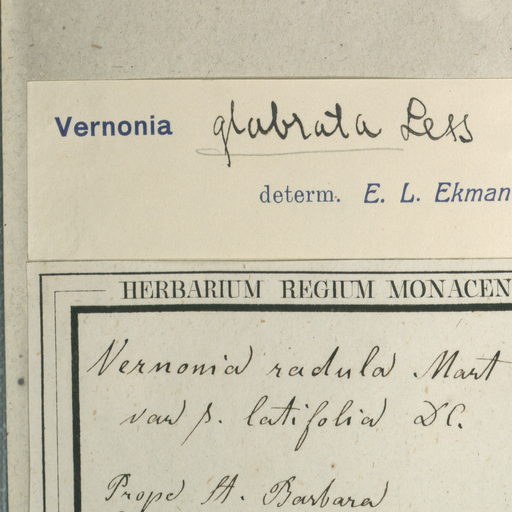 Vernonia glabrata Less
determ. E. L. Ekman
HERBARIUM REGIUM MONACEN
Vernonia radula Mart
var β. latifolia DC.
Prope St. Barbara